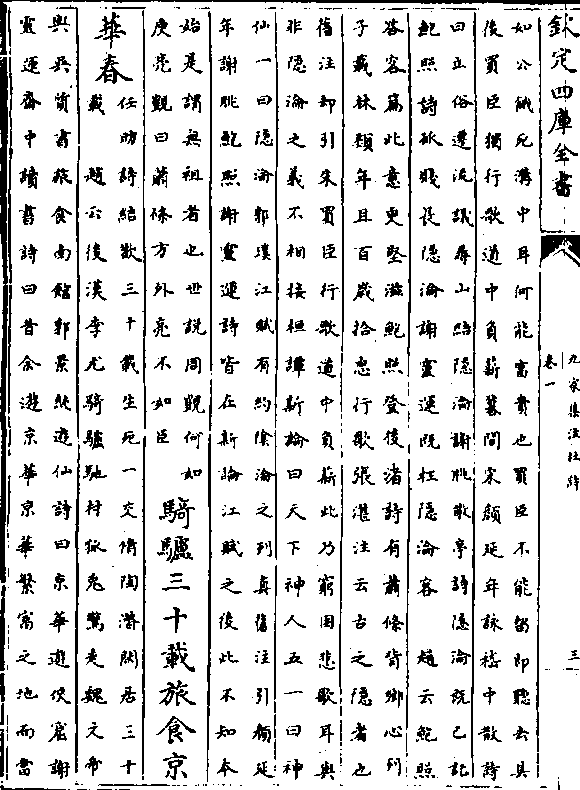 欽定四庫全書
九家集注杜詩
卷一
三
如公餓死溝中耳何能富貴也買臣不能留即聽去其
後買臣獨行歌道中負薪墓間宋顔延年詠嵇中散詩
曰立俗迕流議尋山洽隱淪謝朓敬亭詩隱淪既已託
鮑照詩孤賤長隱淪謝靈運既枉隱淪客 趙云鮑照
答客篇此意更堅滋鮑照登後渚詩有蕭條背鄉心列
子載林類年且百歲拾惠行歌張湛注云古之隱者也
舊注却引朱買臣行歌道中負薪此乃窮困悲歌耳與
非隱淪之義不相接桓譚新論曰天下神人五一曰神
仙一曰隱淪郭璞江賦有約隱淪之列真舊注引顔延
年謝朓鮑照謝靈運詩皆在新論江賦之後此不知本
始是謂無祖者也世說周顗何如
庾亮顗曰蕭條方外亮不如臣
騎驢三十載旅食京
華春
任昉詩結歡三十載生死一交情陶潛閒居三十
載 趙云後漢李尤騎驢馳村狐兔驚走魏文帝
與吳質書旅食南館郭景純遊仙詩曰京華遊俠窟謝
靈運齋中讀書詩曰昔余遊京華京華繁富之地而當